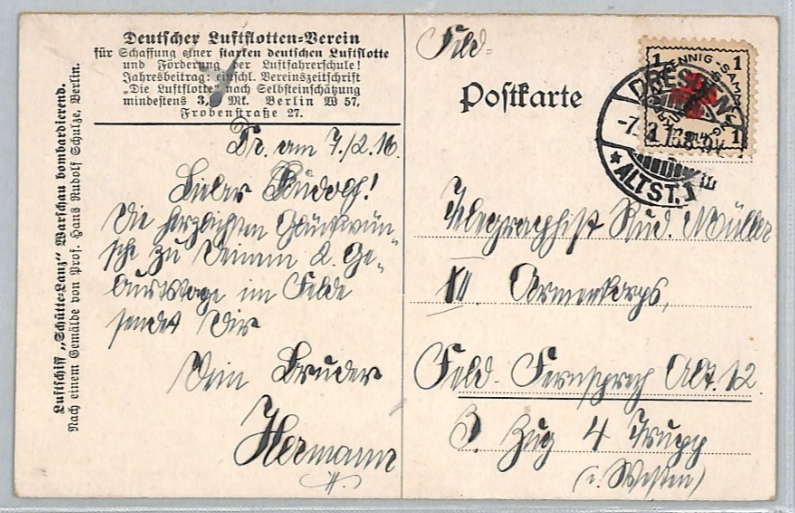 Deutscher Luftflotten=Verein
für Schaffung einer starken deutschen Luftflotte
und Förderung der Luftfahrerschule!
Jahresbeitrag: einschl. Vereinszeitschrift
"Die Luftflotte" nach Selbsteinschätzung
mindestens 3, Mk. Berlin W 57,
Frobenstraße 27.
Luftschiff „Schütte=Lanz" Warschau bombardierend.
Nach einem Gemälde von Prof. Hans Rudolf Schulze, Berlin.
Dr. am 7./2.16.
Lieber Rudolf!
Die herzlichsten Glückwün-
sche zu Deinem 2. Ge-
burtstage im Felde
sendet Dir
Dein Bruder
Hermann
Feld=
Postkarte
1 1
1
DRESDEN
-7.2.16
* ALTST. 1 E
Telegraphist Rud. Müller
XII. Armeekorps,
Feld-Fernsprech Abt. 12
3. Zug 4 Trupp
(i. Westen)